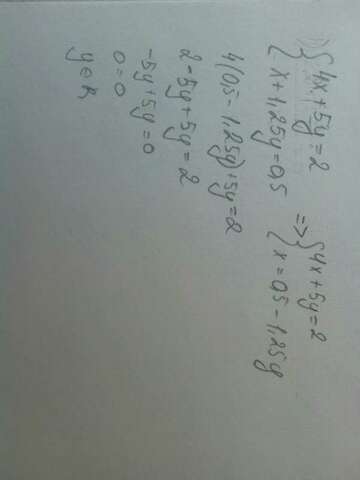 {4x + 5y = 2
{x + 1,25y = 0,5
=> {4x + 5y = 2
{x = 0,5 - 1,25y
4(0,5 - 1,25y) + 5y = 2
2 - 5y + 5y = 2
-5y + 5y = 0
0 = 0
y ∈ R